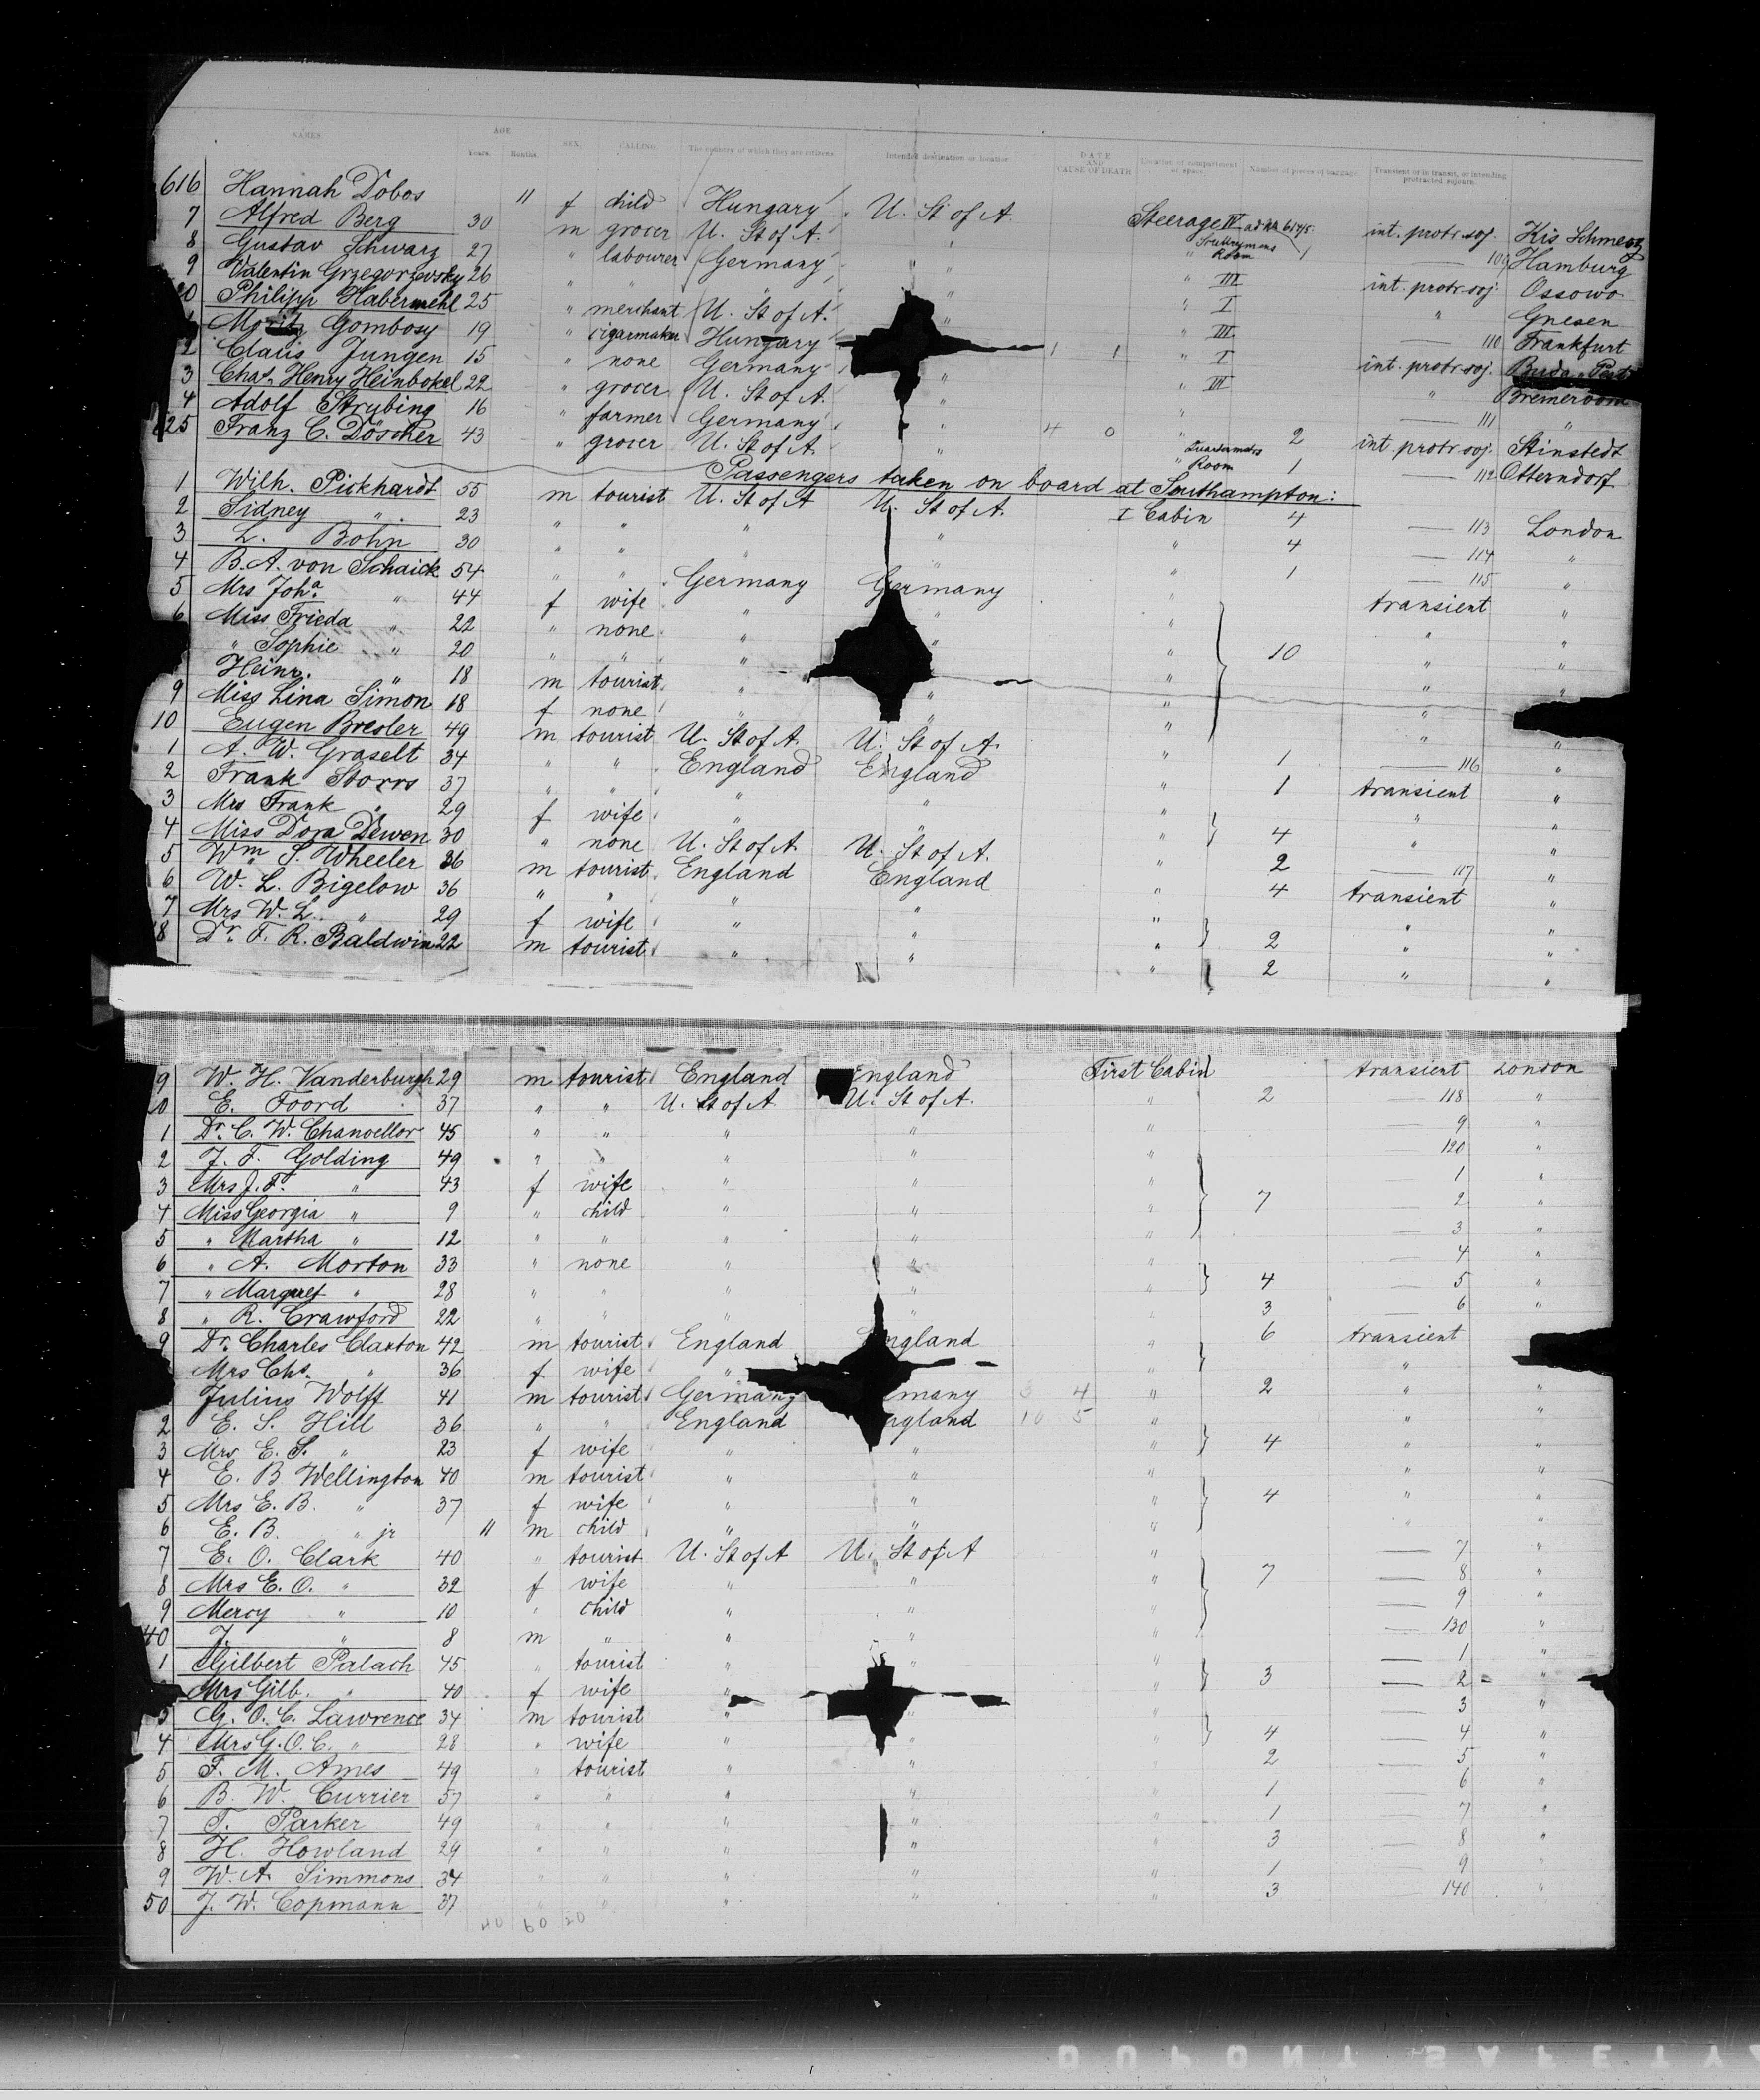 NAMES. AGE. Years. Months. SEX. CALLING. The country of which they are citizens. Intended destination or location DATE AND CAUSE OF DEATH Location of compartment or space. Number of pieces of baggage. Transient or in transit, or intending protracted sojourn.
616 Hannah Dobos 11 f child Hungary U. St of A. Steerage IV int. protr. soj. Kis Schmerz
7 Alfred Berg 30 m grocer U. St of A. " " Room 1 — 109 Hamburg
8 Gustav Schwarz 27 " labourer Germany " " III int. protr. soj. Ossowo
9 Valentin Grzegorzevsky 26 " " " " " I " Gnesen
20 Philipp Habermehl 25 " merchant U. St of A. " " III — 110 Frankfurt
Moritz Gombosy 19 " cigarmaker Hungary 1 1 " I int. protr. soj. Buda-Pest
2 Claus Jungen 15 " none Germany " " III " Bremervörd
3 Chas. Henry Heinbokel 22 " grocer U. St of A. " " — 111 "
4 Adolf Strybing 16 " farmer Germany " 4 0 " 2 int. protr. soj. Stinstedt
625 Franz C. Döscher 43 " grocer U. St of A. " " Room 1 — 112 Otterndorf
Passengers taken on board at Southampton:
1 Wilh. Pickhardt 55 m tourist U. St of A U. St of A. I Cabin 4 — 113 London
2 Sidney " 23 " " " " " 4 — 114 "
3 L. Bohn 30 " " " " " 1 — 115 "
4 B. A. von Schaick 54 " " Germany Germany " transient "
5 Mrs Joha. " 44 f wife " " " " "
6 Miss Frieda " 22 " none " " " 10 " "
" Sophie " 20 " " " " " "
Heinr. " 18 m tourist " " " "
9 Miss Lina Simon 18 f none " " " " "
10 Eugen Bresler 49 m tourist U. St of A. U. St of A. " 1 — 116 "
1 A. W. Graselt 34 " " England England " 1 transient "
2 Frank Storrs 37 " " " " " " "
3 Mrs Frank " 29 f wife " " " 4 " "
4 Miss Dora Dewen 30 " none U. St of A. U. St of A. " 2 — 117 "
5 Wm S. Wheeler 36 m tourist England England " 4 transient "
6 W. L. Bigelow 36 " " " " " " "
7 Mrs W. L. " 29 f wife " " " 2 " "
8 Dr. F. R. Baldwin 22 m tourist " " " 2 " "
9 W. H. Vanderburgh 29 m tourist England England First Cabin transient London
20 E. Foord 37 " " U. St of A U. St of A. " 2 — 118 "
1 Dr. C. W. Chancellor 45 " " " " " — 9 "
2 J. F. Golding 49 " " " " " 120
3 Mrs J. F. " 43 f wife " " " — 1 "
4 Miss Georgia " 9 " child " " " 7 — 2 "
5 " Martha " 12 " " " " " — 3 "
6 " A. Morton 33 " none " " " — 4 "
7 " Margaret " 28 " " " " " 4 — 5 "
8 " R. Crawford 22 " " " " " 3 — 6 "
9 Dr. Charles Claxton 42 m tourist England England " 6 transient
Mrs Chs. " 36 f wife " "
Julius Wolff 41 m tourist Germany many 3 4 " 2 " "
2 E. S. Hill 36 " " England England 10 5 " " "
3 Mrs E. S. " 23 f wife " " " 4 " "
4 E. B. Wellington 40 m tourist " " " " "
5 Mrs E. B. " 37 f wife " " " 4 " "
6 E. B. " jr 11 m child " " " " "
7 E. O. Clark 40 " tourist U. St of A U. St of A " — 7 "
8 Mrs E. O. " 32 f wife " " " 7 — 8 "
9 Mercy " 10 " child " " " — 9 "
40 J. " 8 m " " " " — 130 "
1 Gilbert Palach 45 " tourist " " " — 1 "
Mrs Gilb. " 40 f wife " " 3 — 2 "
3 G. O. C. Lawrence 34 m tourist " " " — 3 "
4 Mrs G. O. C. " 28 " wife " " " 4 — 4 "
5 F. M. Ames 49 " tourist " " 2 — 5 "
6 B. W. Currier 57 " " " " 1 — 6 "
7 T. Parker 49 " " " " " 1 — 7 "
8 H. Howland 29 " " " " " 3 — 8 "
9 W. A. Simmons 34 " " " " " 1 — 9 "
50 J. W. Copmann 37 " " " " " 3 — 140 "
40 60 20
DUPONT SAFETY